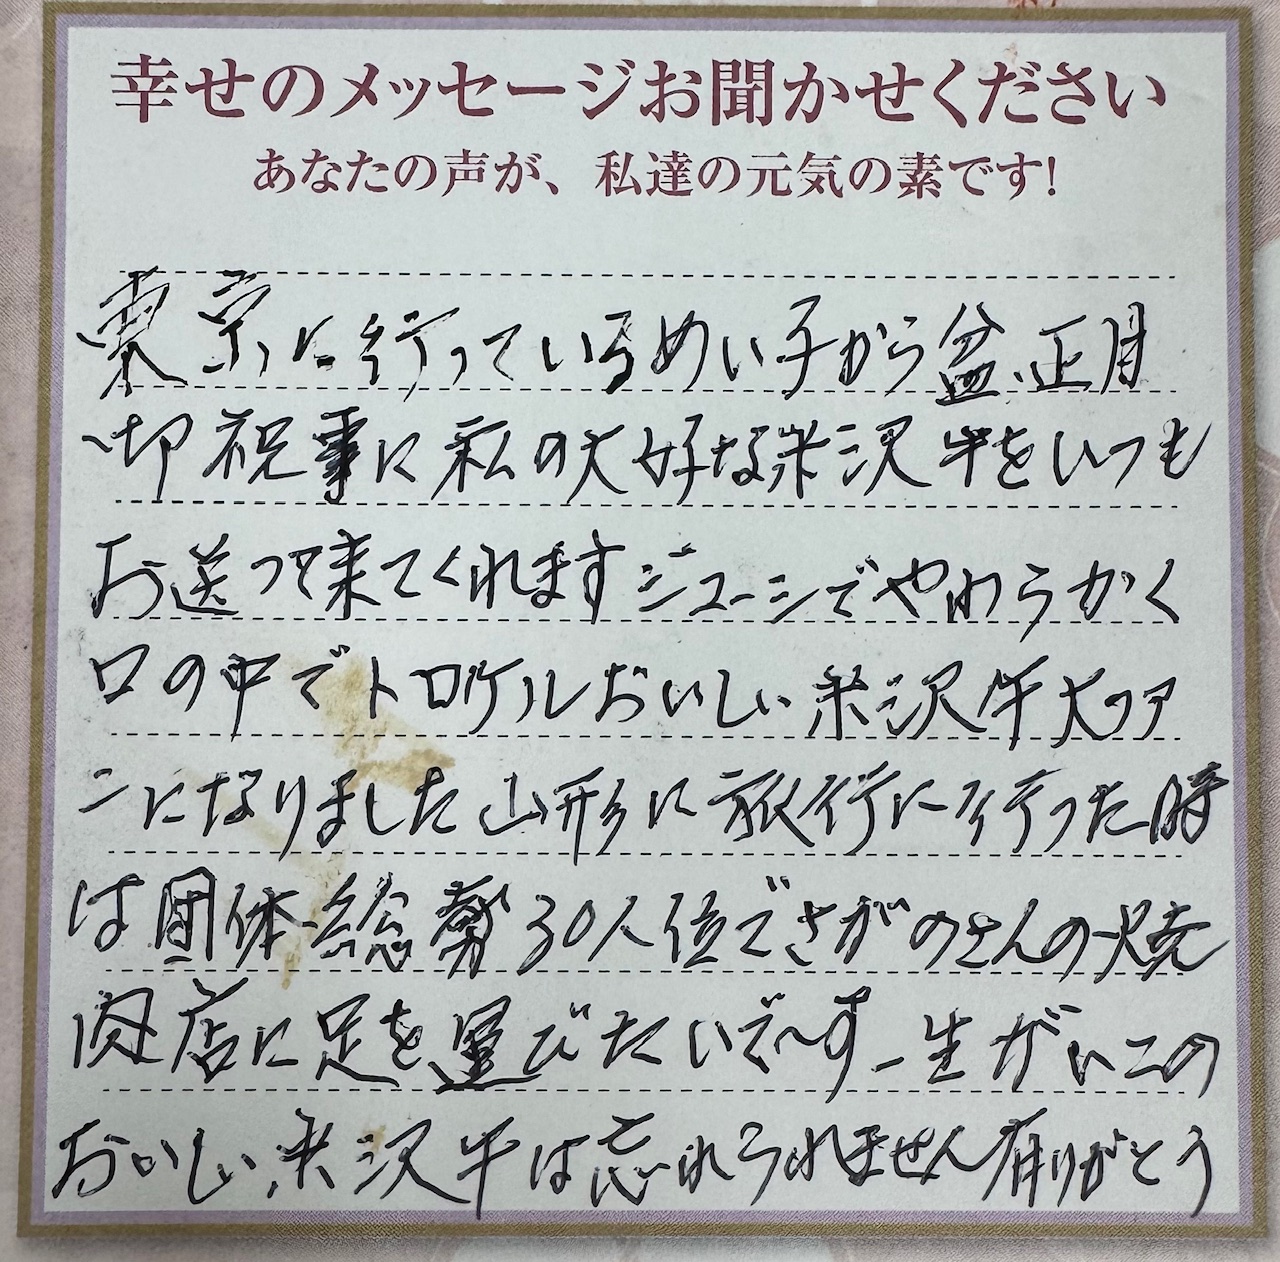 幸せのメッセージお聞かせください
あなたの声が、私達の元気の素です!
東京に行っているめい子から盆、正月
祝事に私の大好な米沢牛をいつも
お送って来てくれますジューシでやわらかく
口の中でトロケルおいしい米沢牛大ファ
ンになりました山形に旅行に行った時
は団体総勢30人位でさがのさんの焼
肉店に足を運びたいで〜す一生がいこの
おいしい米沢牛は忘れられません有りがとう